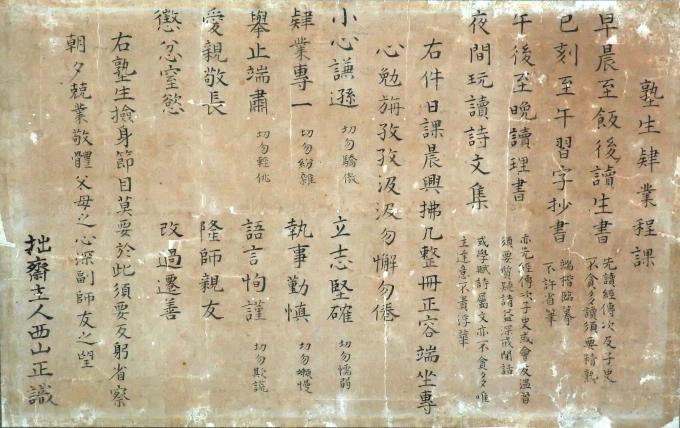 塾生肄業程課
早晨至飯後讀生書 先讀經傳次及子史
不貪多讀須要精熟
巳刻至午習字抄書 端楷臨摹
不許省筆
午後至晚讀理書 亦先經傳次子史或會友溫習
須要質疑請益深戒閒話
夜間玩讀詩文集 或學賦詩屬文亦不貪多唯
主達意不貴浮華
右件日課晨興拂几整冊正容端坐專
心勉旃孜孜汲汲勿懈勿倦
小心謙遜 切勿驕傲 立志堅確 切勿懦弱
肄業專一 切勿紛雜 執事勤慎 切勿懶慢
舉止端肅 切勿輕佻 語言恂謹 切勿欺謊
愛親敬長 隆師親友
懲忿窒慾 改過遷善
右塾生撿身節目莫要於此須要反躬省察
朝夕兢業敬體父母之心深副師友之望
拙齋主人西山正識